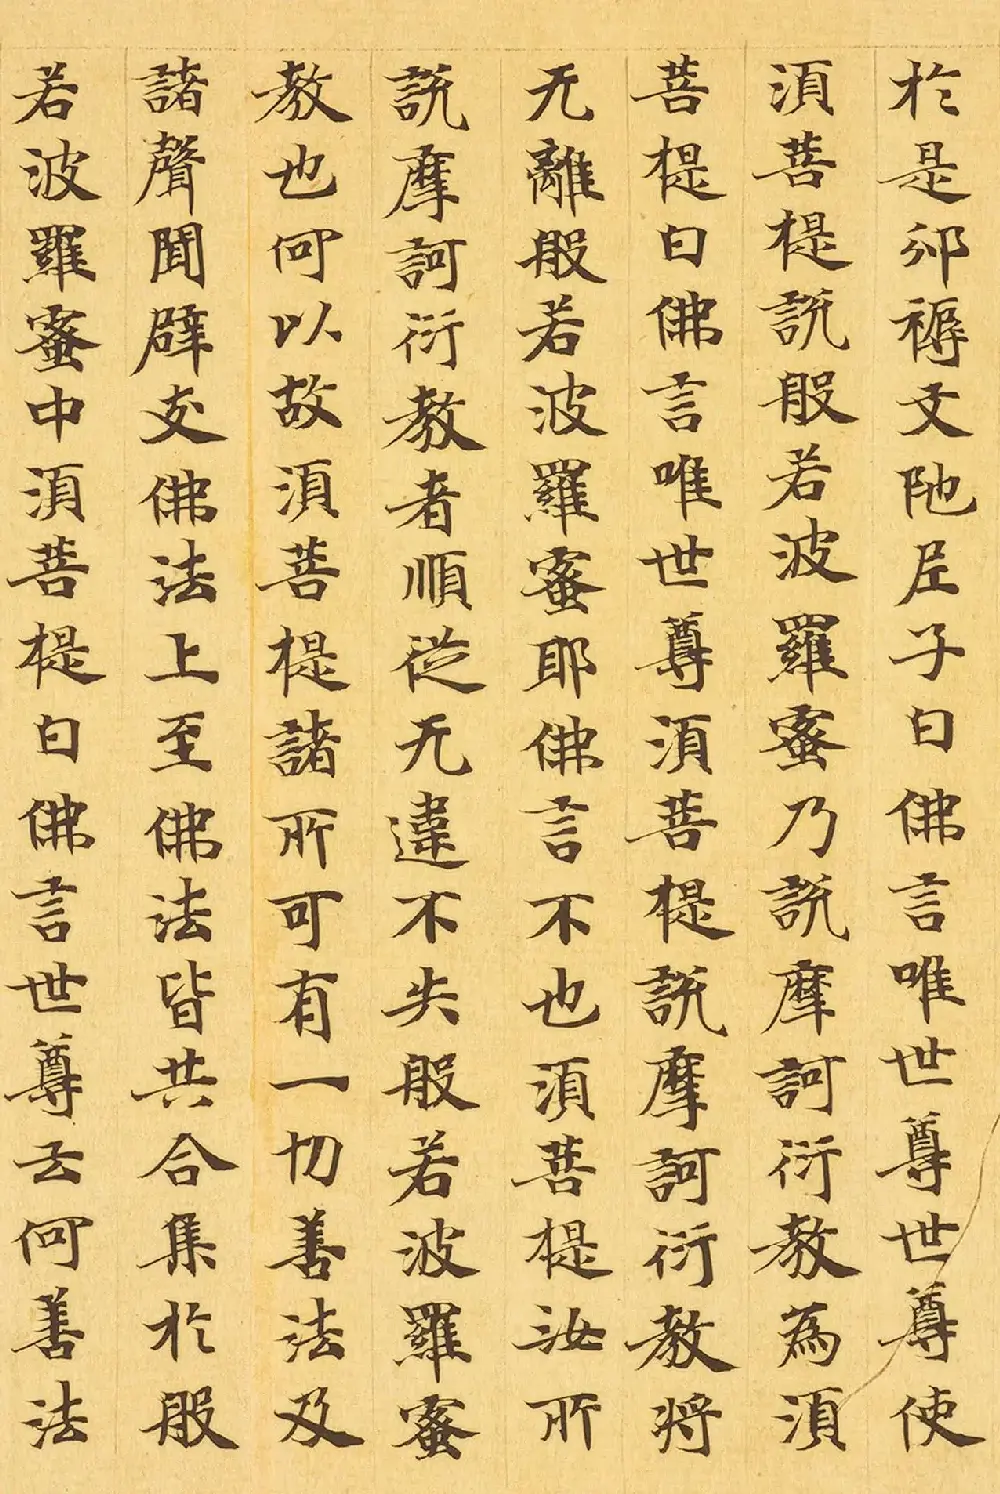 於是邠耨文陁尼子白佛言唯世尊世尊使
須菩提説般若波羅蜜乃説摩訶衍教為須
菩提白佛言唯世尊須菩提説摩訶衍教將
无離般若波羅蜜耶佛言不也須菩提汝所
説摩訶衍教者順從无違不失般若波羅蜜
教也何以故須菩提諸所可有一切善法及
諸聲聞辟支佛法上至佛法皆共合集於般
若波羅蜜中須菩提白佛言世尊云何善法